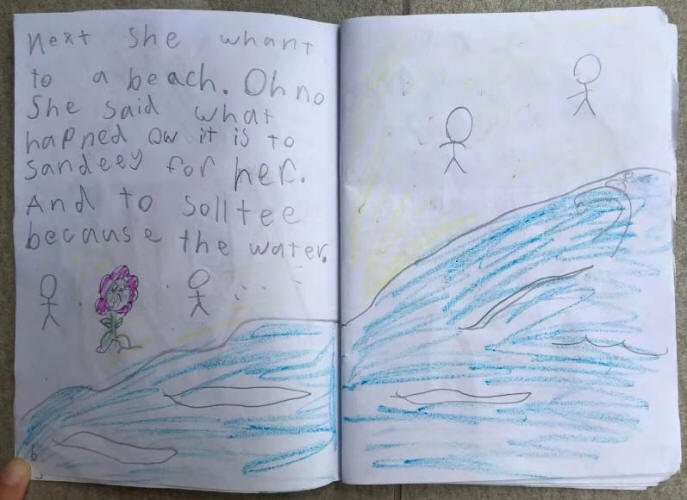 Next she whant
to a beach. Oh no
She said what
hapned ow it is to
sandeey for her.
And to solltee
because the water.